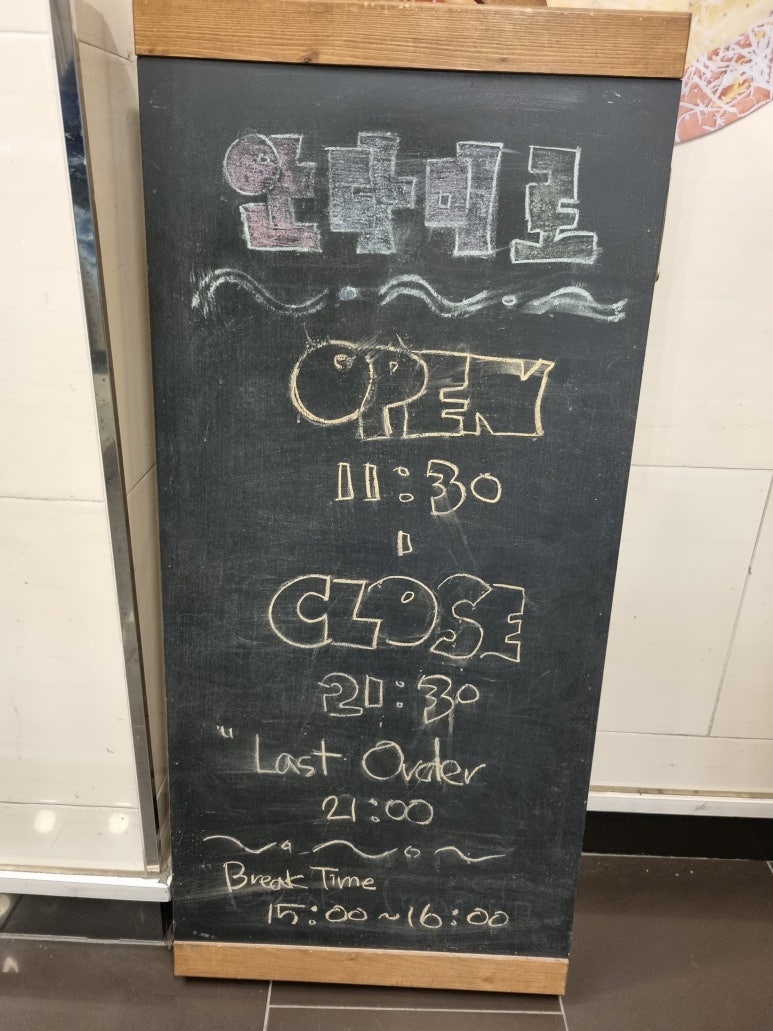 안다미로
OPEN
11:30
CLOSE
21:30
" Last Order
21:00
Break Time
15:00~16:00